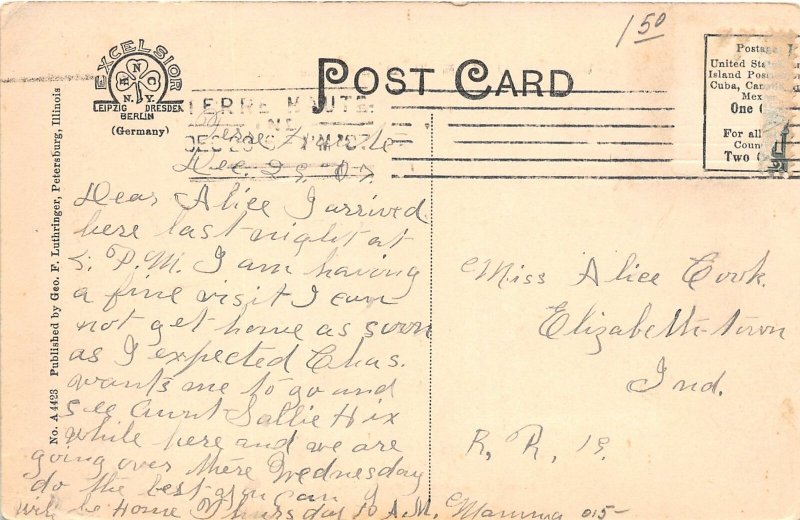 1 50
EXCELSIOR
N
E C
N.Y.
LEIPZIG DRESDEN
BERLIN
(Germany)
POST CARD
Postage
United States
Island
Cuba,
One
For all
Two
No. A 4423 Published by Geo. F. Luthringer, Petersburg, Illinois
TERRE HAUTE
IND
DEC 29
Terre Haute
Dec. 29, 07
Dear Alice I arrived
here last night at
5. P.M. I am having
a fine visit I can
not get home as soon
as I expected Chas.
wants me to go and
see aunt Sallie Hix
while here and we are
going over there Wednesday
do the best you can I
will be Home Thursday 10 A.M. Mamma
015
Miss Alice Cook
Elizabeth-town
Ind.
R. R. 19.